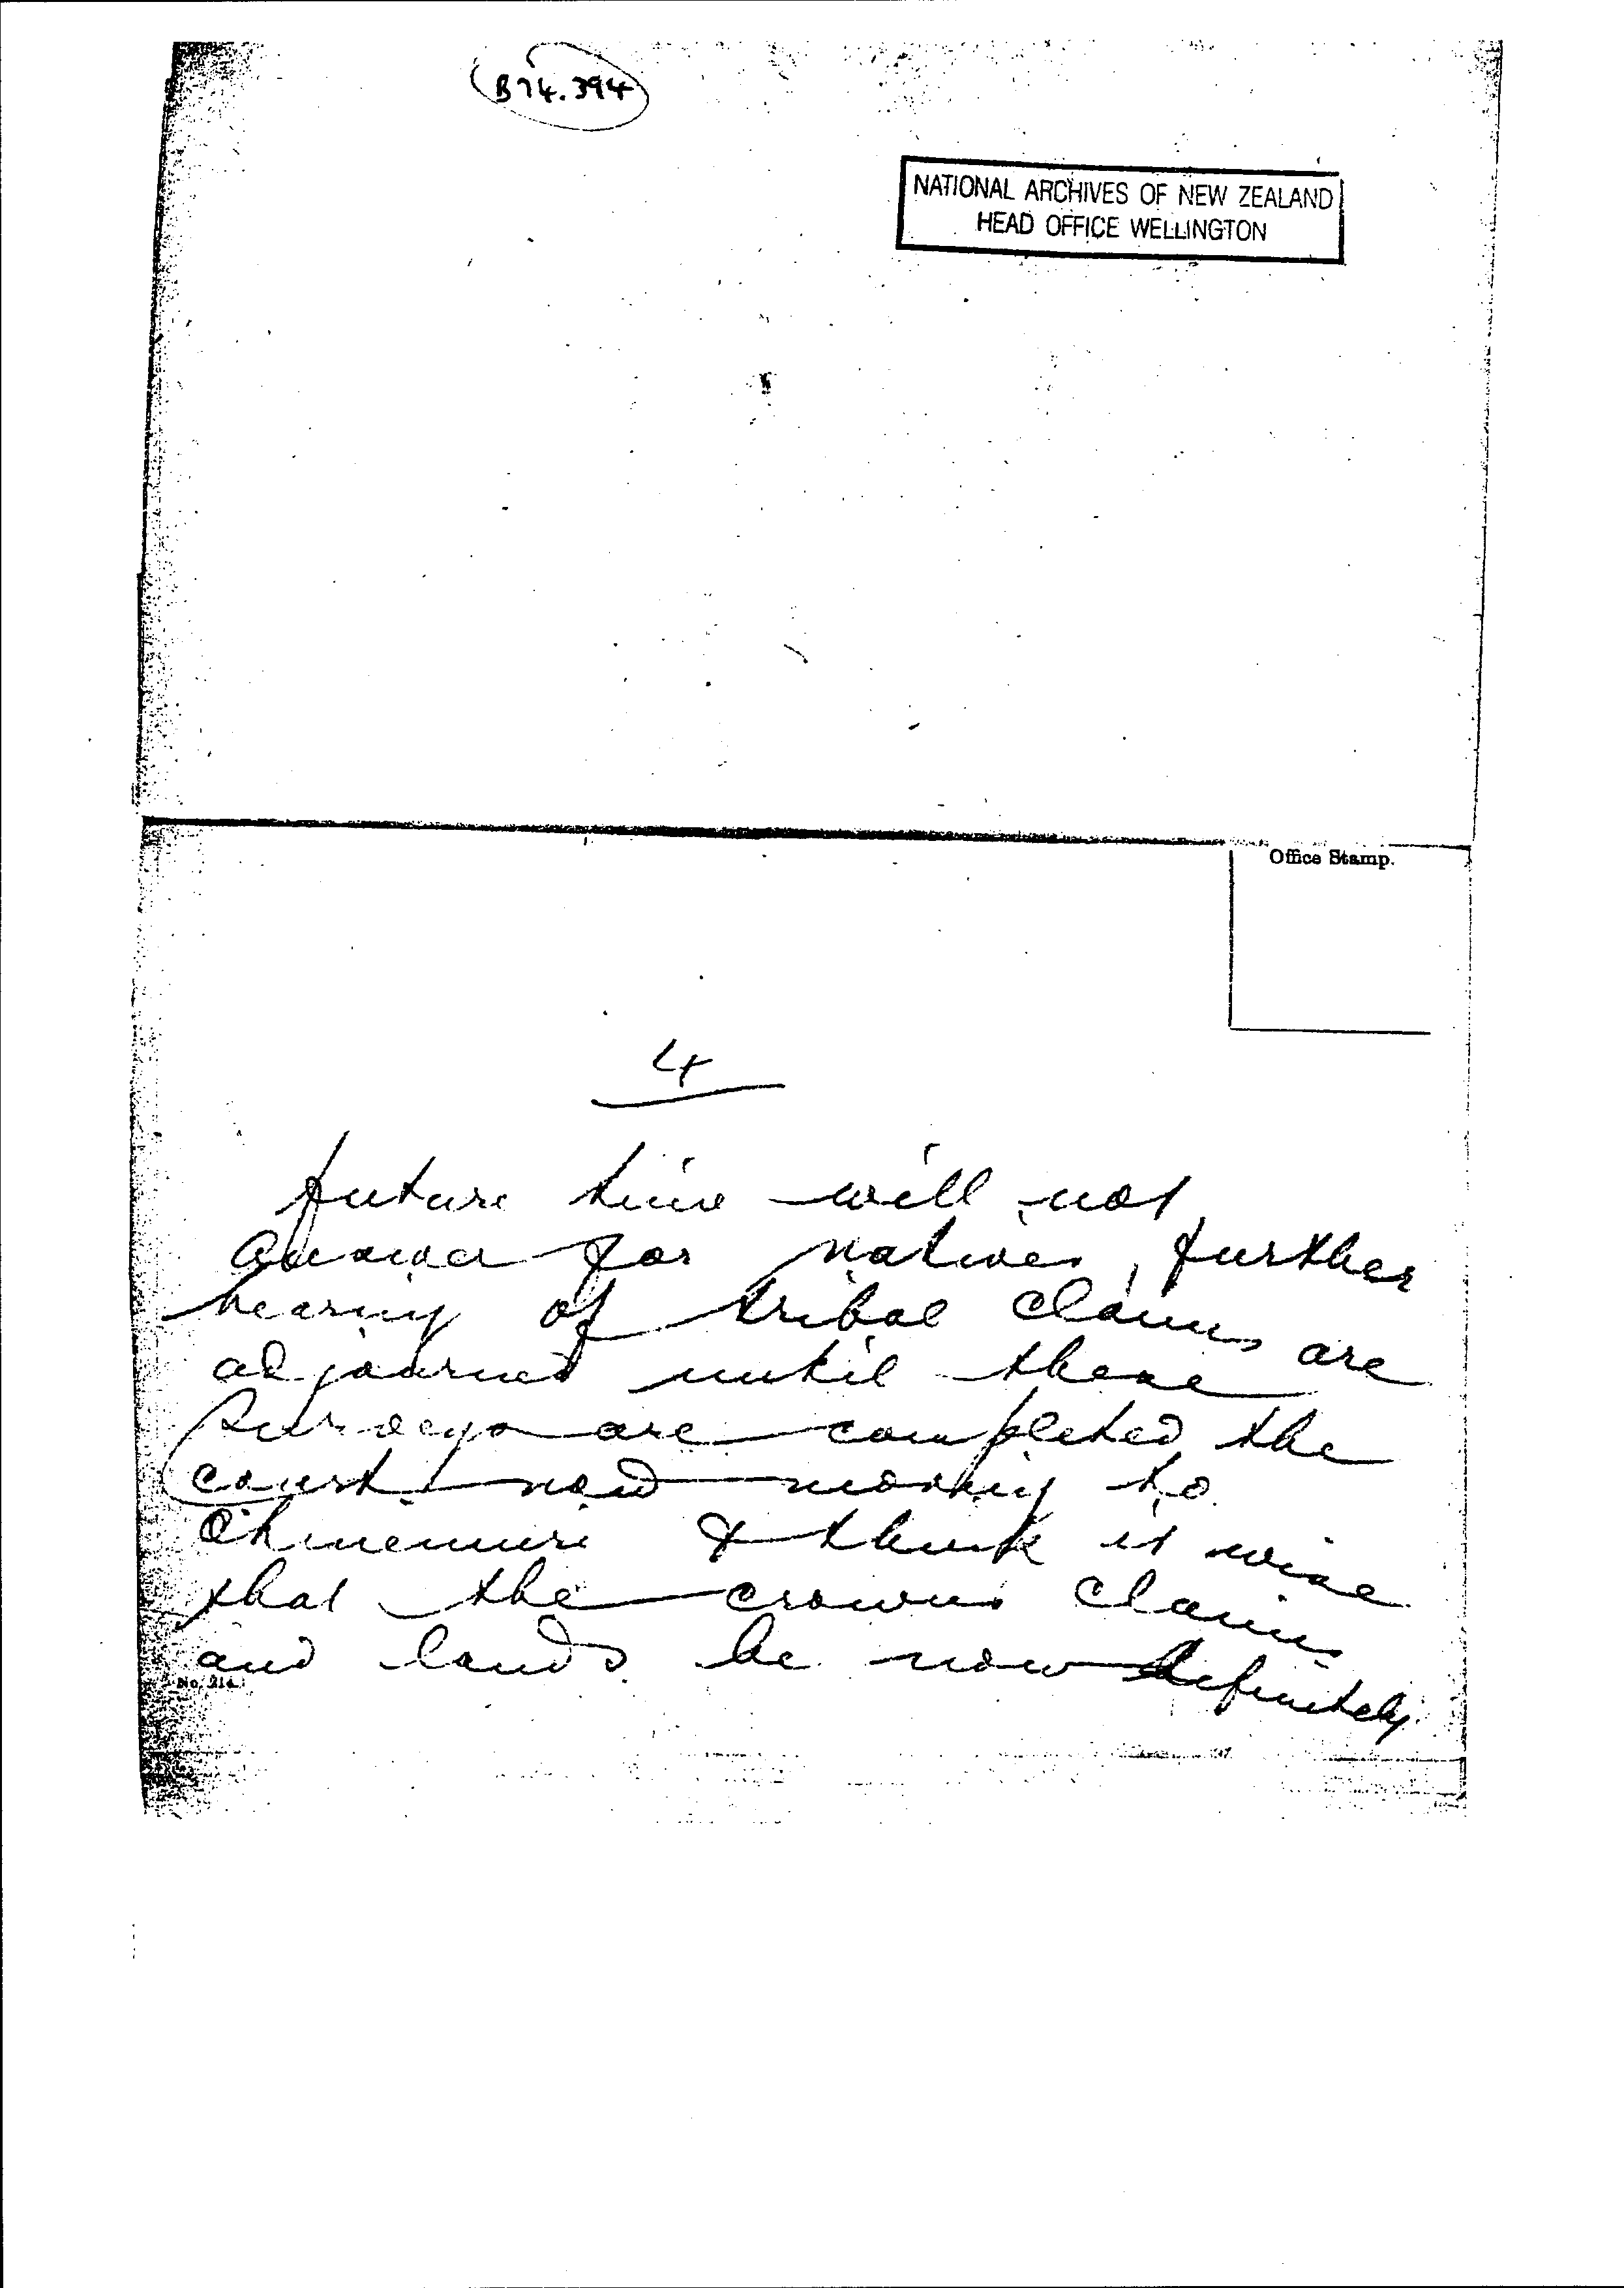 B74.394
NATIONAL ARCHIVES OF NEW ZEALAND
HEAD OFFICE WELLINGTON
Office Stamp.
4
future time will not
answer for natives, further
hearing of tribal claims are
adjourned until these
surveys are completed the
court now moving to
Ohinemuri & think it wise
that the crowns claims
and lands be now definitely
No. 214